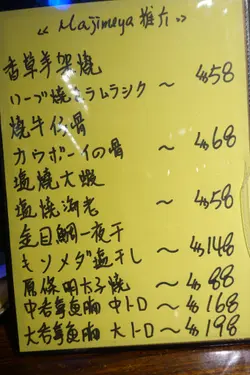 《Majimeya 推介》
香草羊架燒
ハーブ燒キラムラック ~ $58
燒牛仔骨
カウボーイの骨 ~ $68
塩燒大蝦
塩燒海老 ~ $58
金目鯛一夜干
キンメダ塩干し ~ $148
原條明太子燒 ~ $88
中吞拿魚胸 中トロ ~ $168
大吞拿魚胸 大トロ ~ $198